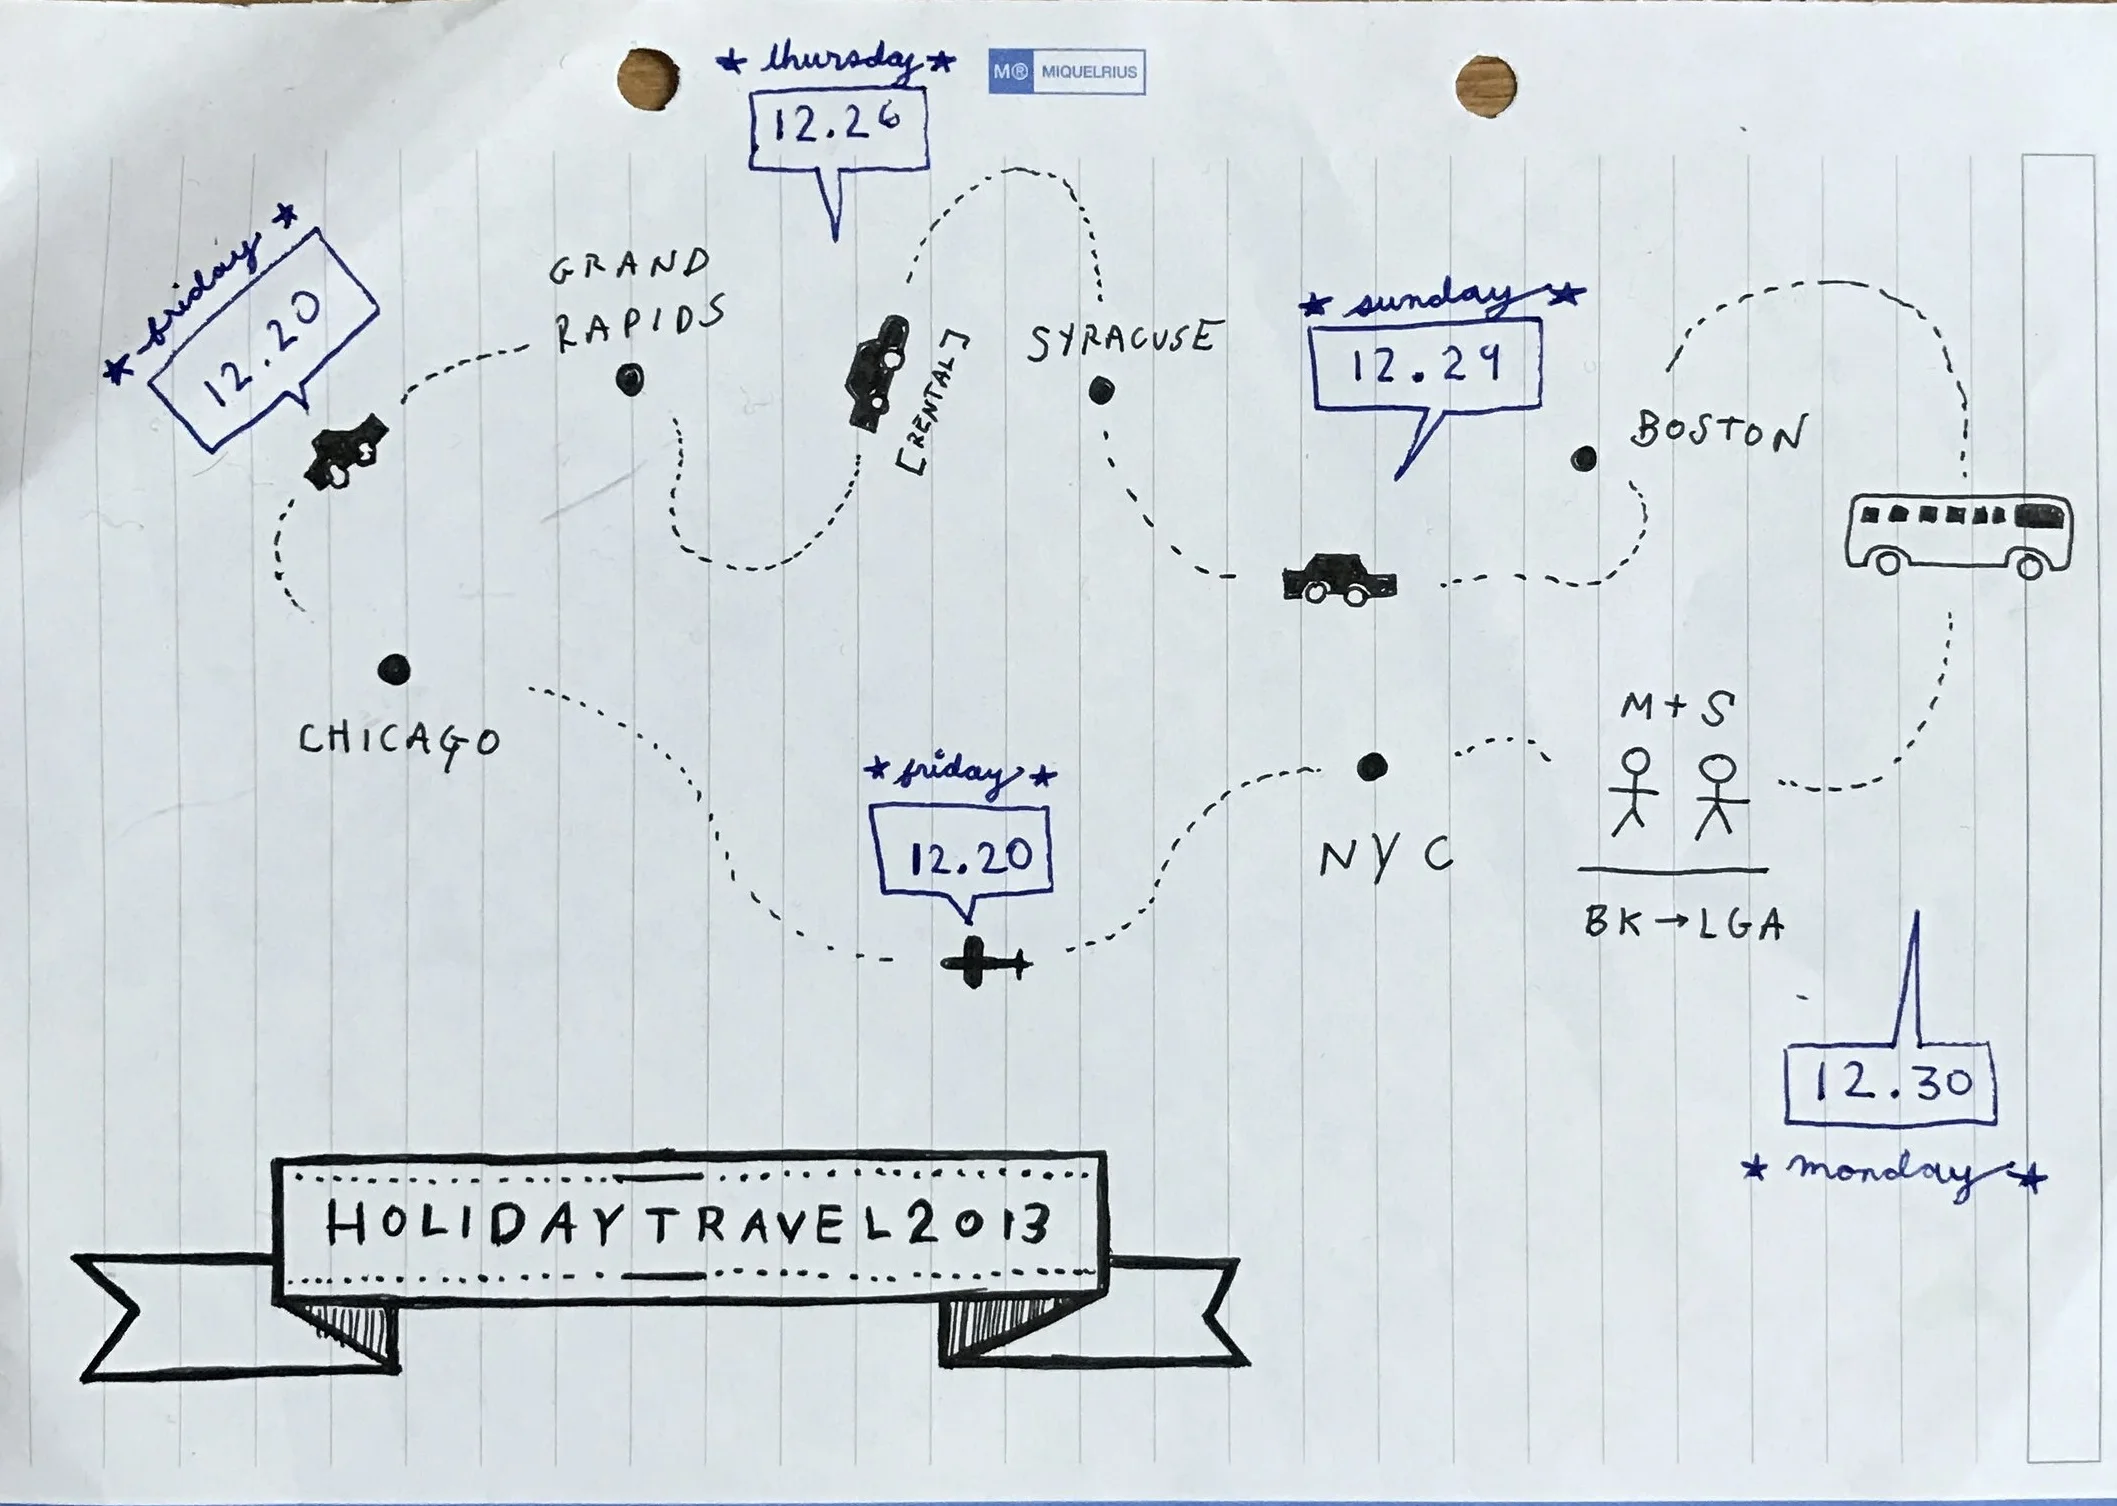 thursday
M® MIQUELRIUS
12.26
friday
12.20
GRAND
RAPIDS
[RENTAL]
SYRACUSE
sunday
12.29
BOSTON
CHICAGO
M + S
friday
12.20
NYC
BK → LGA
12.30
monday
HOLIDAY TRAVEL 2013